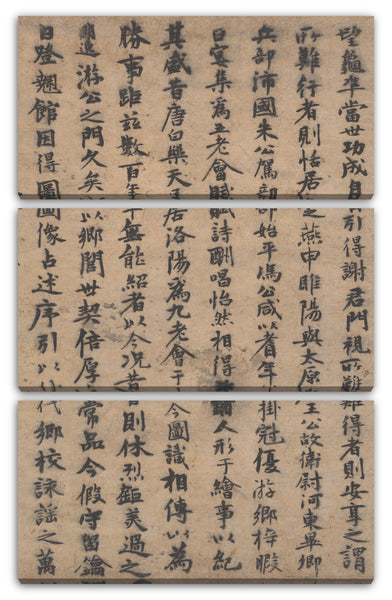 望龜準當世功成自引得謝君門視所難得者則安享之謂
所難行者則恬居之燕申睢陽與太原王公故衛尉河東畢卿
兵部沛國朱公駕部始平馮公咸以耆年掛冠優游鄉梓暇
日宴集爲五老會賦詩酬唱怡然相得人形于繪事以紀
其盛昔唐白樂天居洛陽爲九老會于今圖識相傳以爲
勝事距茲數百年無能紹者以今況昔則休烈鉅美過之
明逸游公之門久矣以鄉閭世契倍厚常品今假守留鑰
日登翹館因得圖像占述序引以代鄉校詠謠之萬